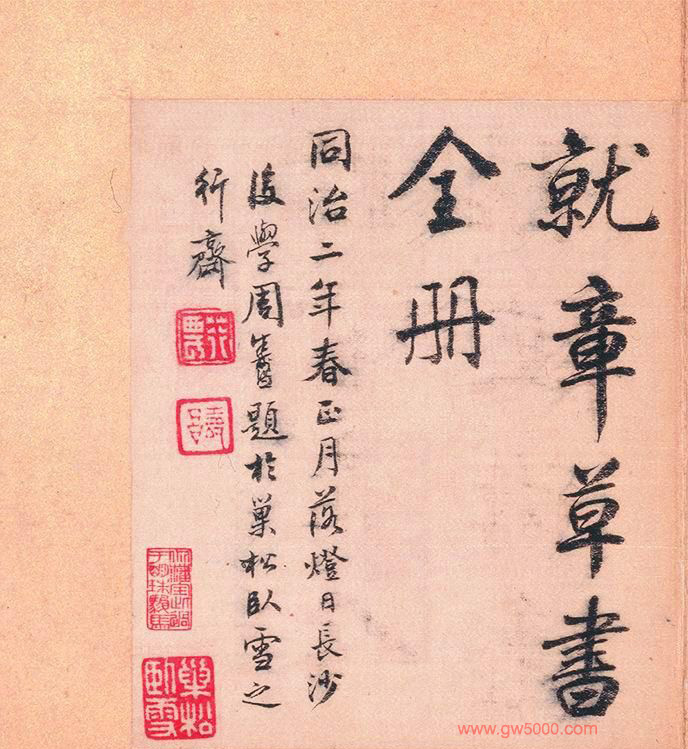 就章草書
全冊
同治二年春正月落燈日長沙
後學周題於巢松臥雪之
行齋
巢松
臥雪
www.gw5000.com